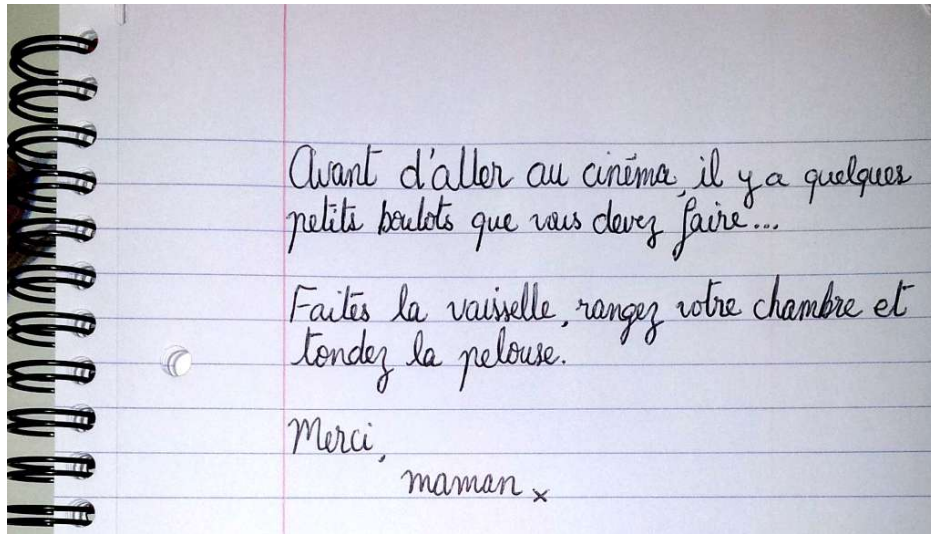 Avant d'aller au cinéma, il y a quelques
petits boulots que vous devez faire...
Faites la vaisselle, rangez votre chambre et
tondez la pelouse.
Merci,
maman x